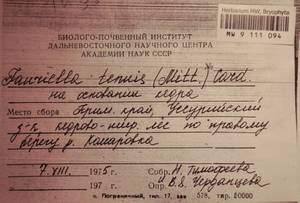 Herbarium MW, Bryophyta
MW 9 111 094
БИОЛОГО-ПОЧВЕННЫЙ ИНСТИТУТ
ДАЛЬНЕВОСТОЧНОГО НАУЧНОГО ЦЕНТРА
АКАДЕМИИ НАУК СССР
tenuis (Mitt.) Card
на основании кедра
Место сбора Прим. край, Уссурийский
лес по правому
берегу р. Комаровка
7. VIII. 1975г Собр. Н. Тимофеева
197 г. Опр. В. Я. Черданцева
п. Пограничный, тип. 17, зак 578, тир. 20000